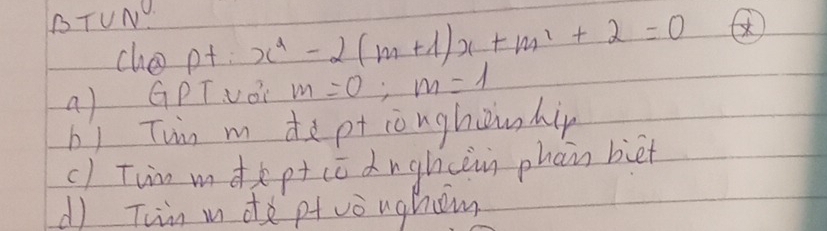 BTVN:
Cho pt: x² - 2(m+1)x + m² + 2 = 0 (*)
a) GPT với m = 0 ; m = 1
b) Tìm m để pt có nghiệm kép
c) Tìm m để pt có 2 nghiệm phân biệt
d) Tìm m để pt vô nghiệm